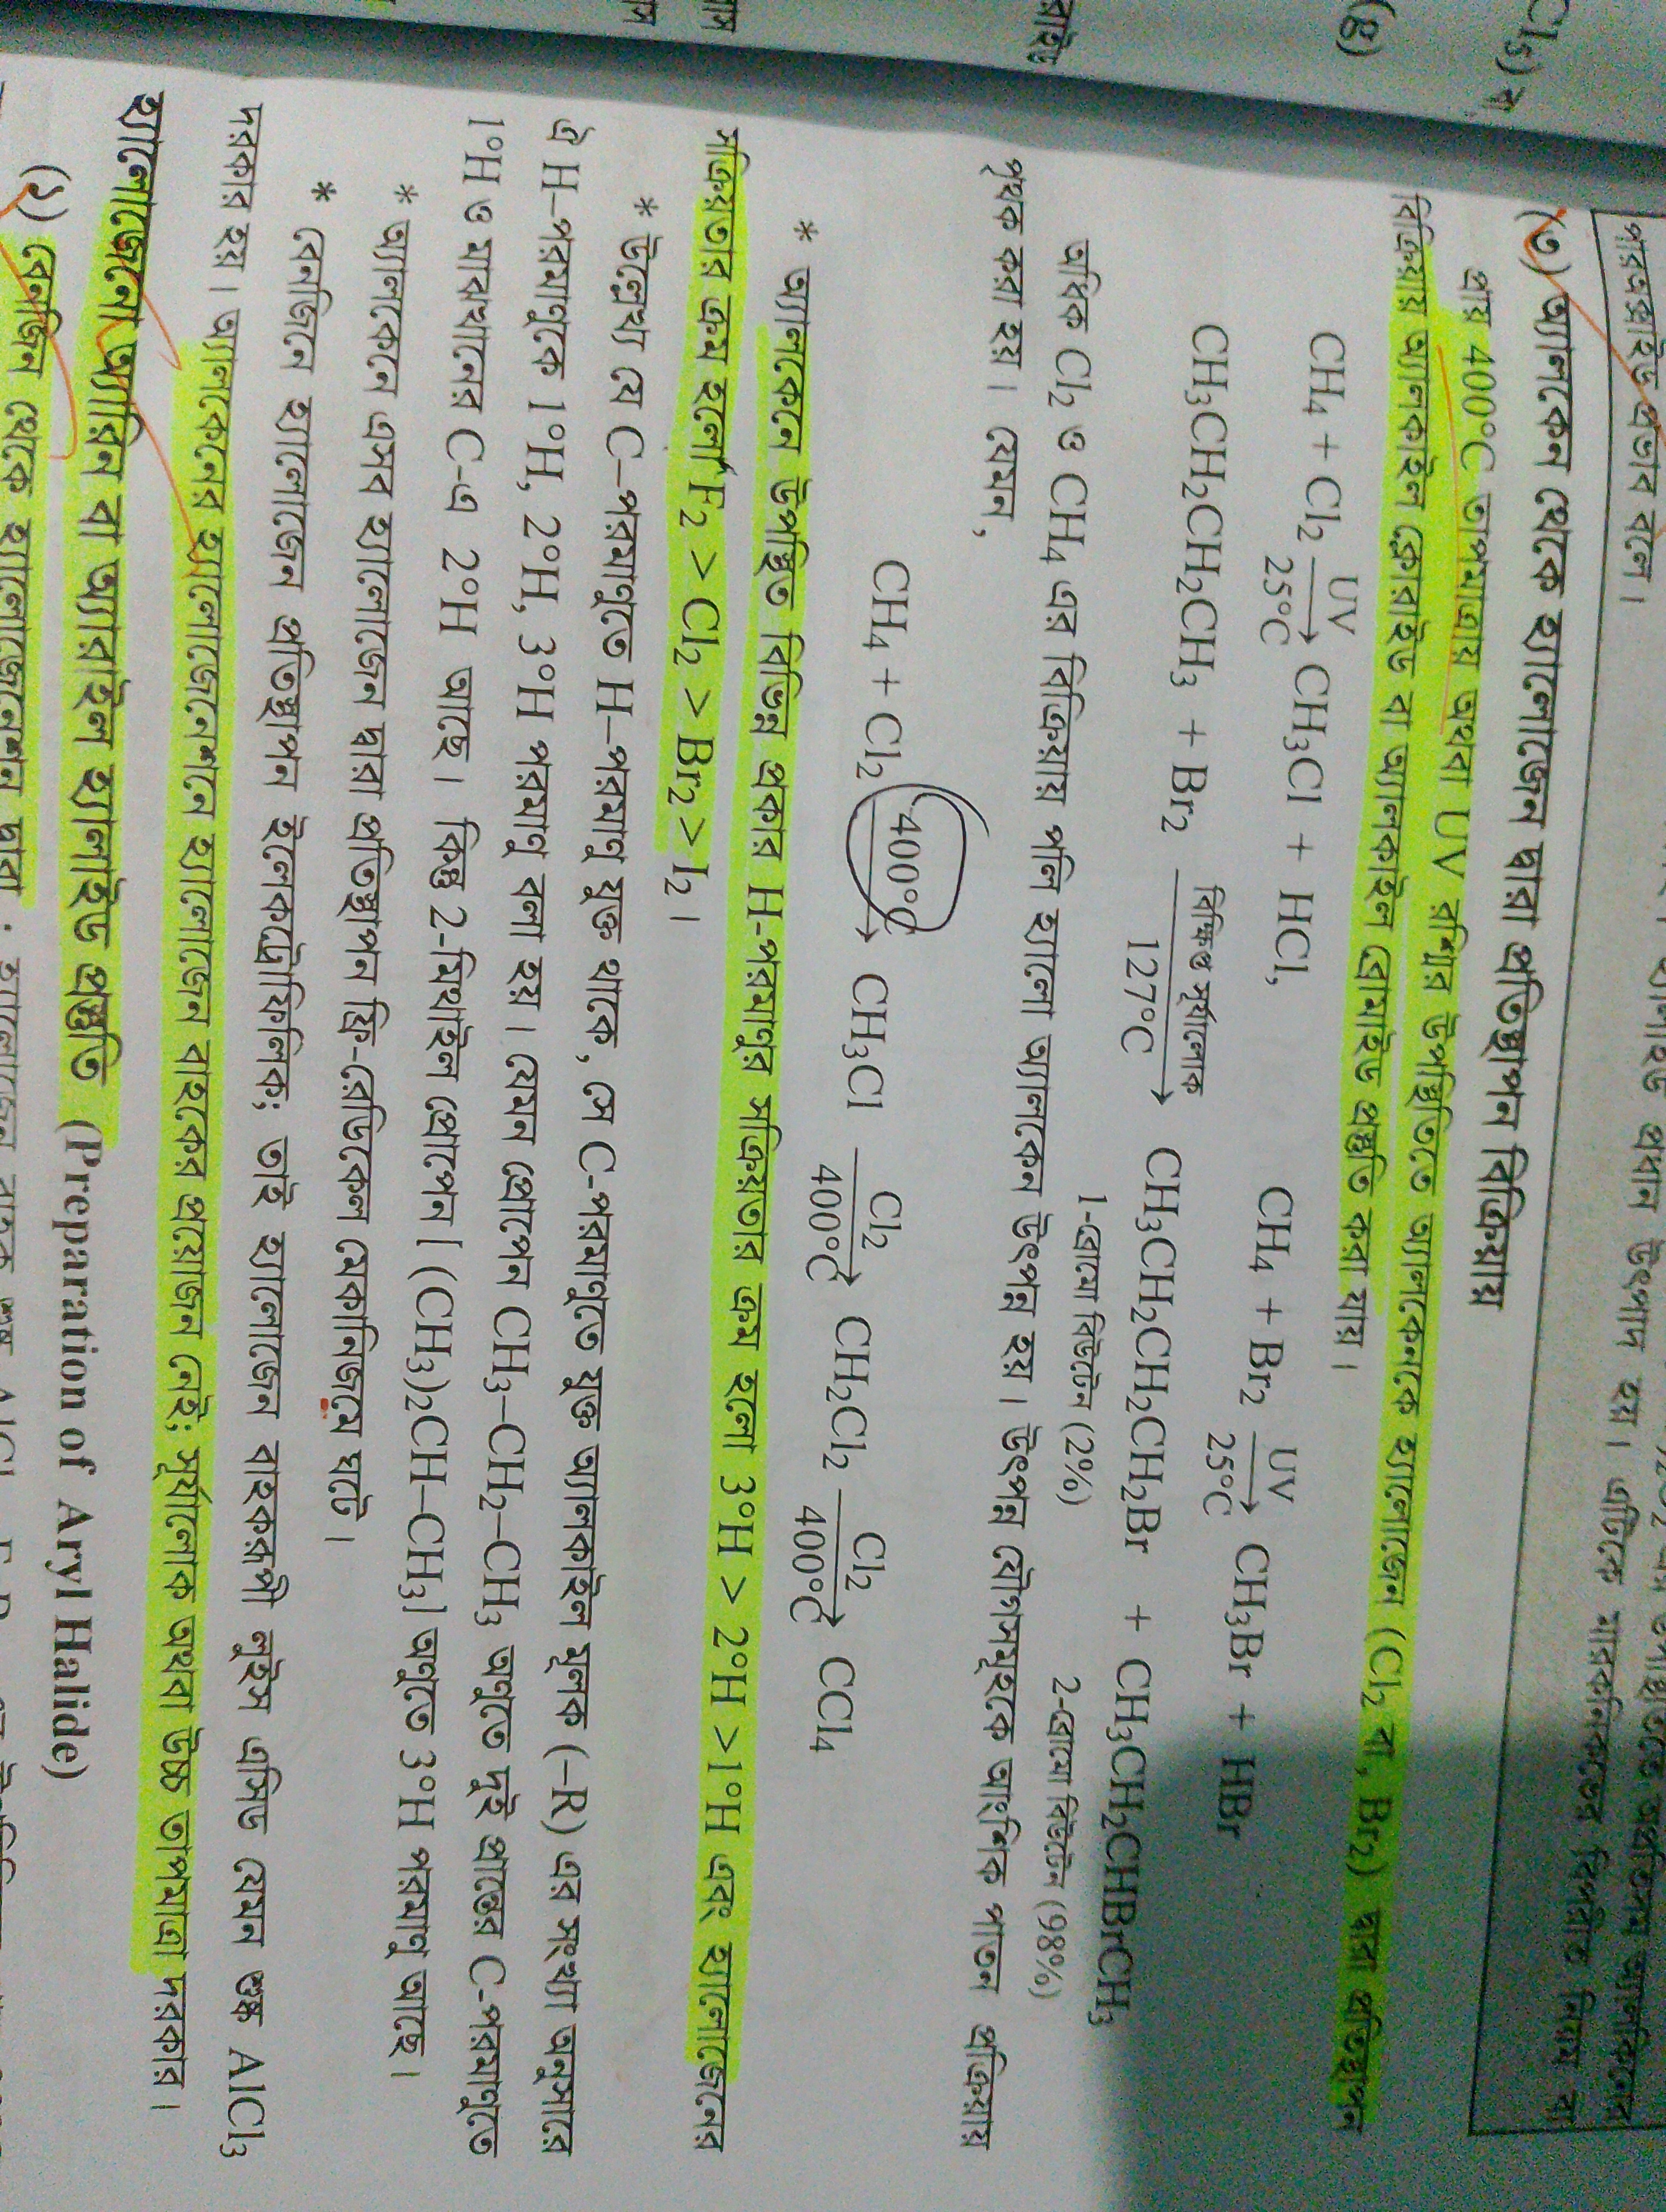 পারঅক্সাইড প্রভাব বলে।
(৩) অ্যালকেন থেকে হ্যালোজেন দ্বারা প্রতিস্থাপন বিক্রিয়ায়
প্রায় 400°C তাপমাত্রায় অথবা UV রশ্মির উপস্থিতিতে অ্যালকেনকে হ্যালোজেন (Cl2 বা, Br2) দ্বারা প্রতিস্থাপন
বিক্রিয়ায় অ্যালকাইল ক্লোরাইড বা অ্যালকাইল ব্রোমাইড প্রস্তুতি করা যায়।
CH4 + Cl2 UV 25°C → CH3Cl + HCl, CH4 + Br2 UV 25°C → CH3Br + HBr
CH3CH2CH2CH3 + Br2 বিক্ষিপ্ত সূর্যালোক 127°C → CH3CH2CH2CH2Br + CH3CH2CHBrCH3
1-ব্রোমো বিউটেন (2%) 2-ব্রোমো বিউটেন (98%)
অধিক Cl2 ও CH4 এর বিক্রিয়ায় পলি হ্যালো অ্যালকেন উৎপন্ন হয়। উৎপন্ন যৌগসমূহকে আংশিক পাতন প্রক্রিয়ায়
পৃথক করা হয়। যেমন,
CH4 + Cl2 400°C → CH3Cl Cl2 400°C → CH2Cl2 Cl2 400°C → CCl4
* অ্যালকেনে উপস্থিত বিভিন্ন প্রকার H-পরমাণুর সক্রিয়তার ক্রম হলো 3°H > 2°H > 1°H এবং হ্যালোজেনের
সক্রিয়তার ক্রম হলো F2 > Cl2 > Br2 > I2।
* উল্লেখ্য যে C–পরমাণুতে H–পরমাণু যুক্ত থাকে, সে C-পরমাণুতে যুক্ত অ্যালকাইল মূলক (–R) এর সংখ্যা অনুসারে
ঐ H–পরমাণুকে 1°H, 2°H, 3°H পরমাণু বলা হয়। যেমন প্রোপেন CH3–CH2–CH3 অণুতে দুই প্রান্তের C-পরমাণুতে
1°H ও মাঝখানের C-এ 2°H আছে। কিন্তু 2-মিথাইল প্রোপেন [(CH3)2CH–CH3] অণুতে 3°H পরমাণু আছে।
* অ্যালকেনে এসব হ্যালোজেন দ্বারা প্রতিস্থাপন ফ্রি-রেডিকেল মেকানিজমে ঘটে।
* বেনজিনে হ্যালোজেন প্রতিস্থাপন ইলেকট্রোফিলিক; তাই হ্যালোজেন বাহকরূপী লুইস এসিড যেমন শুষ্ক AlCl3
দরকার হয়। অ্যালকেনের হ্যালোজেনেশনে হ্যালোজেন বাহকের প্রয়োজন নেই; সূর্যালোক অথবা উচ্চ তাপমাত্রা দরকার।
হ্যালোজেনো অ্যারিন বা অ্যারাইল হ্যালাইড প্রস্তুতি (Preparation of Aryl Halide)
(১) বেনজিন থেকে হ্যালোজেনেশন দ্বারা :